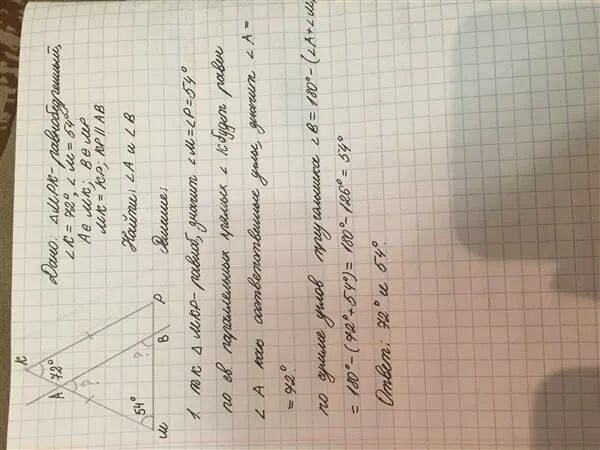 Дано: △МРК - равнобедренный,
∠K = 72°, ∠M = 54°
A ∈ MK; B ∈ MP
MK = KP; KP || AB
Найти: ∠A и ∠B
Решение:
K
A
72°
?
?
54°
M
B
P
1. т.к △ МКР - равноб, значит ∠M = ∠P = 54°
по св параллельных прямых ∠ K будет равен
∠ A как соответственные углы, значит ∠ A =
= 72°
по сумме углов треугольника ∠B = 180° - (∠A + ∠M
= 180° - (72° + 54°) = 180° - 126° = 54°
Ответ: 72° и 54°